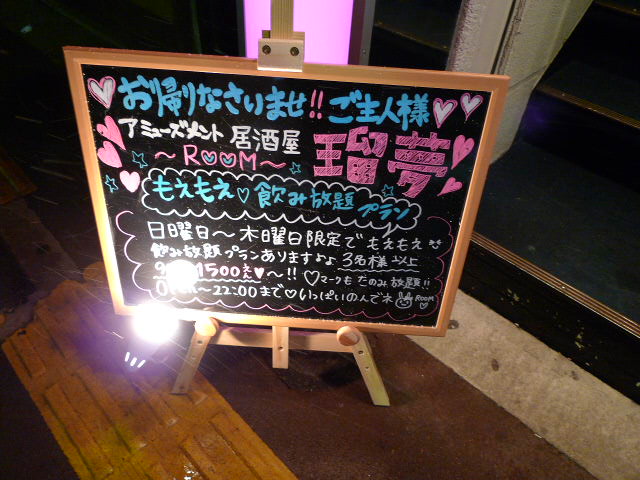 お帰りなさいませ!!ご主人様
アミューズメント 居酒屋 瑠夢
～ROOM～
もえもえ♡飲み放題プラン
日曜日～木曜日限定でもえもえ
飲み放題プランありますよょ 3名様以上
1500え♥～!! ♡マークもたのみ放題!!
～22:00まで♡いっぱいのんでネ ROOM